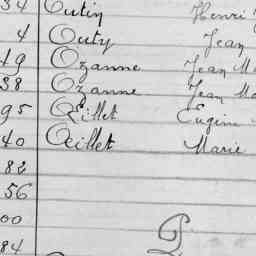 34 Outin Henri
4 Outy Jean
49 Ozanne Jean Ma
38 Ozanne Jean Ma
95 Œillet Eugène
40 Œillet Marie
82
56
00
P
84